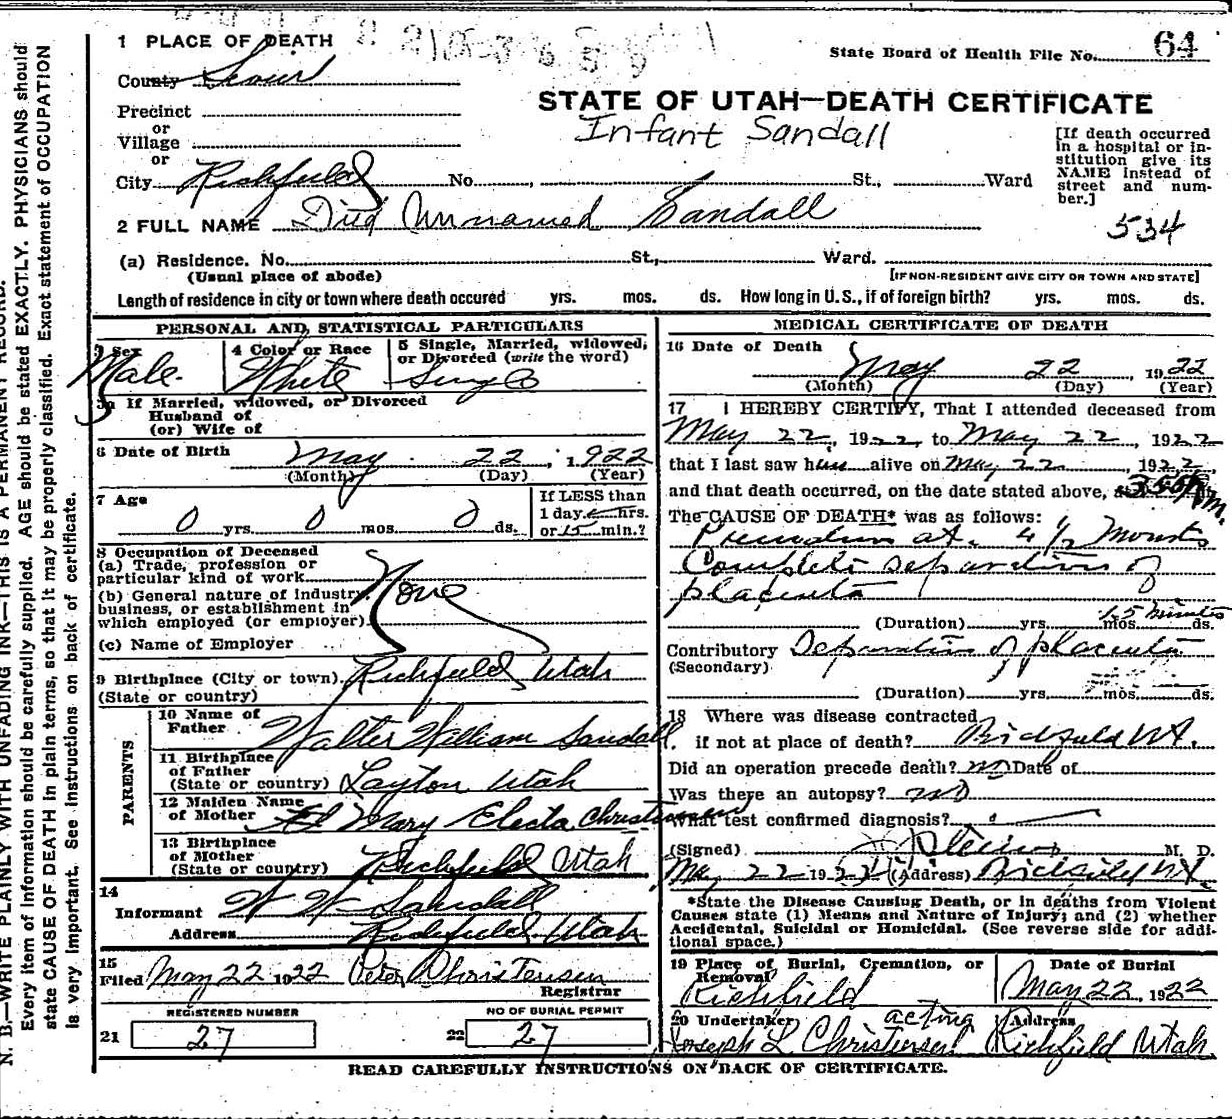 1 PLACE OF DEATH
State Board of Health File No. 64
County Sevier
STATE OF UTAH—DEATH CERTIFICATE
Infant Sandall
Precinct
or
Village
or
City Richfield No. , St., Ward
[If death occurred
in a hospital or in-
stitution give its
NAME instead of
street and num-
ber.]
534
2 FULL NAME Died Unnamed Sandall
(a) Residence. No. St., Ward.
(Usual place of abode)
[IF NON-RESIDENT GIVE CITY OR TOWN AND STATE]
Length of residence in city or town where death occured yrs. mos. ds. How long in U.S., if of foreign birth? yrs. mos. ds.
PERSONAL AND STATISTICAL PARTICULARS
3 Sex
Male.
4 Color or Race
White
5 Single, Married, widowed,
or Divorced (write the word)
Single
3a If Married, widowed, or Divorced
Husband of
(or) Wife of
6 Date of Birth May 22, 1922
(Month) (Day) (Year)
7 Age
0 yrs. 0 mos. 0 ds.
If LESS than
1 day hrs.
or 15 min.?
8 Occupation of Deceased
(a) Trade, profession or
particular kind of work
(b) General nature of industry,
business, or establishment in
which employed (or employer)
None
(c) Name of Employer
9 Birthplace (City or town) Richfield Utah
(State or country)
PARENTS
10 Name of
Father Walter William Sandall
11 Birthplace
of Father
(State or country) Layton Utah
12 Maiden Name
of Mother Mary Electa Christensen
13 Birthplace
of Mother
(State or country) Richfield Utah
14
Informant W W Sandall
Address Richfield Utah
15
Filed May 22 1922 Peter Christensen
Registrar
REGISTERED NUMBER
21 27
NO OF BURIAL PERMIT
22 27
MEDICAL CERTIFICATE OF DEATH
16 Date of Death
May 22 1922
(Month) (Day) (Year)
17 I HEREBY CERTIFY, That I attended deceased from
May 22, 1922, to May 22, 1922
that I last saw him alive on May 22, 1922,
and that death occurred, on the date stated above, at 355 P m.
The CAUSE OF DEATH* was as follows:
at 4 1/2 Months
Complete separation of
placenta
15 minutes
(Duration) yrs. mos. ds.
Contributory Separation of placenta
(Secondary)
(Duration) yrs. mos. ds.
18 Where was disease contracted
if not at place of death? Richfield Ut.
Did an operation precede death? no Date of
Was there an autopsy? no
What test confirmed diagnosis?
(Signed) M. D.
May 22 1922 (Address) Richfield Ut.
*State the Disease Causing Death, or in deaths from Violent
Causes state (1) Means and Nature of Injury; and (2) whether
Accidental, Suicidal or Homicidal. (See reverse side for addi-
tional space.)
19 Place of Burial, Cremation, or
Removal
Richfield
Date of Burial
May 22, 1922
20 Undertaker acting
Joseph L Christensen
Address
Richfield Utah
READ CAREFULLY INSTRUCTIONS ON BACK OF CERTIFICATE.
N. B.—WRITE PLAINLY WITH UNFADING INK—THIS IS A PERMANENT RECORD.
Every item of information should be carefully supplied. AGE should be stated EXACTLY. PHYSICIANS should
state CAUSE OF DEATH in plain terms, so that it may be properly classified. Exact statement of OCCUPATION
is very important. See instructions on back of certificate.